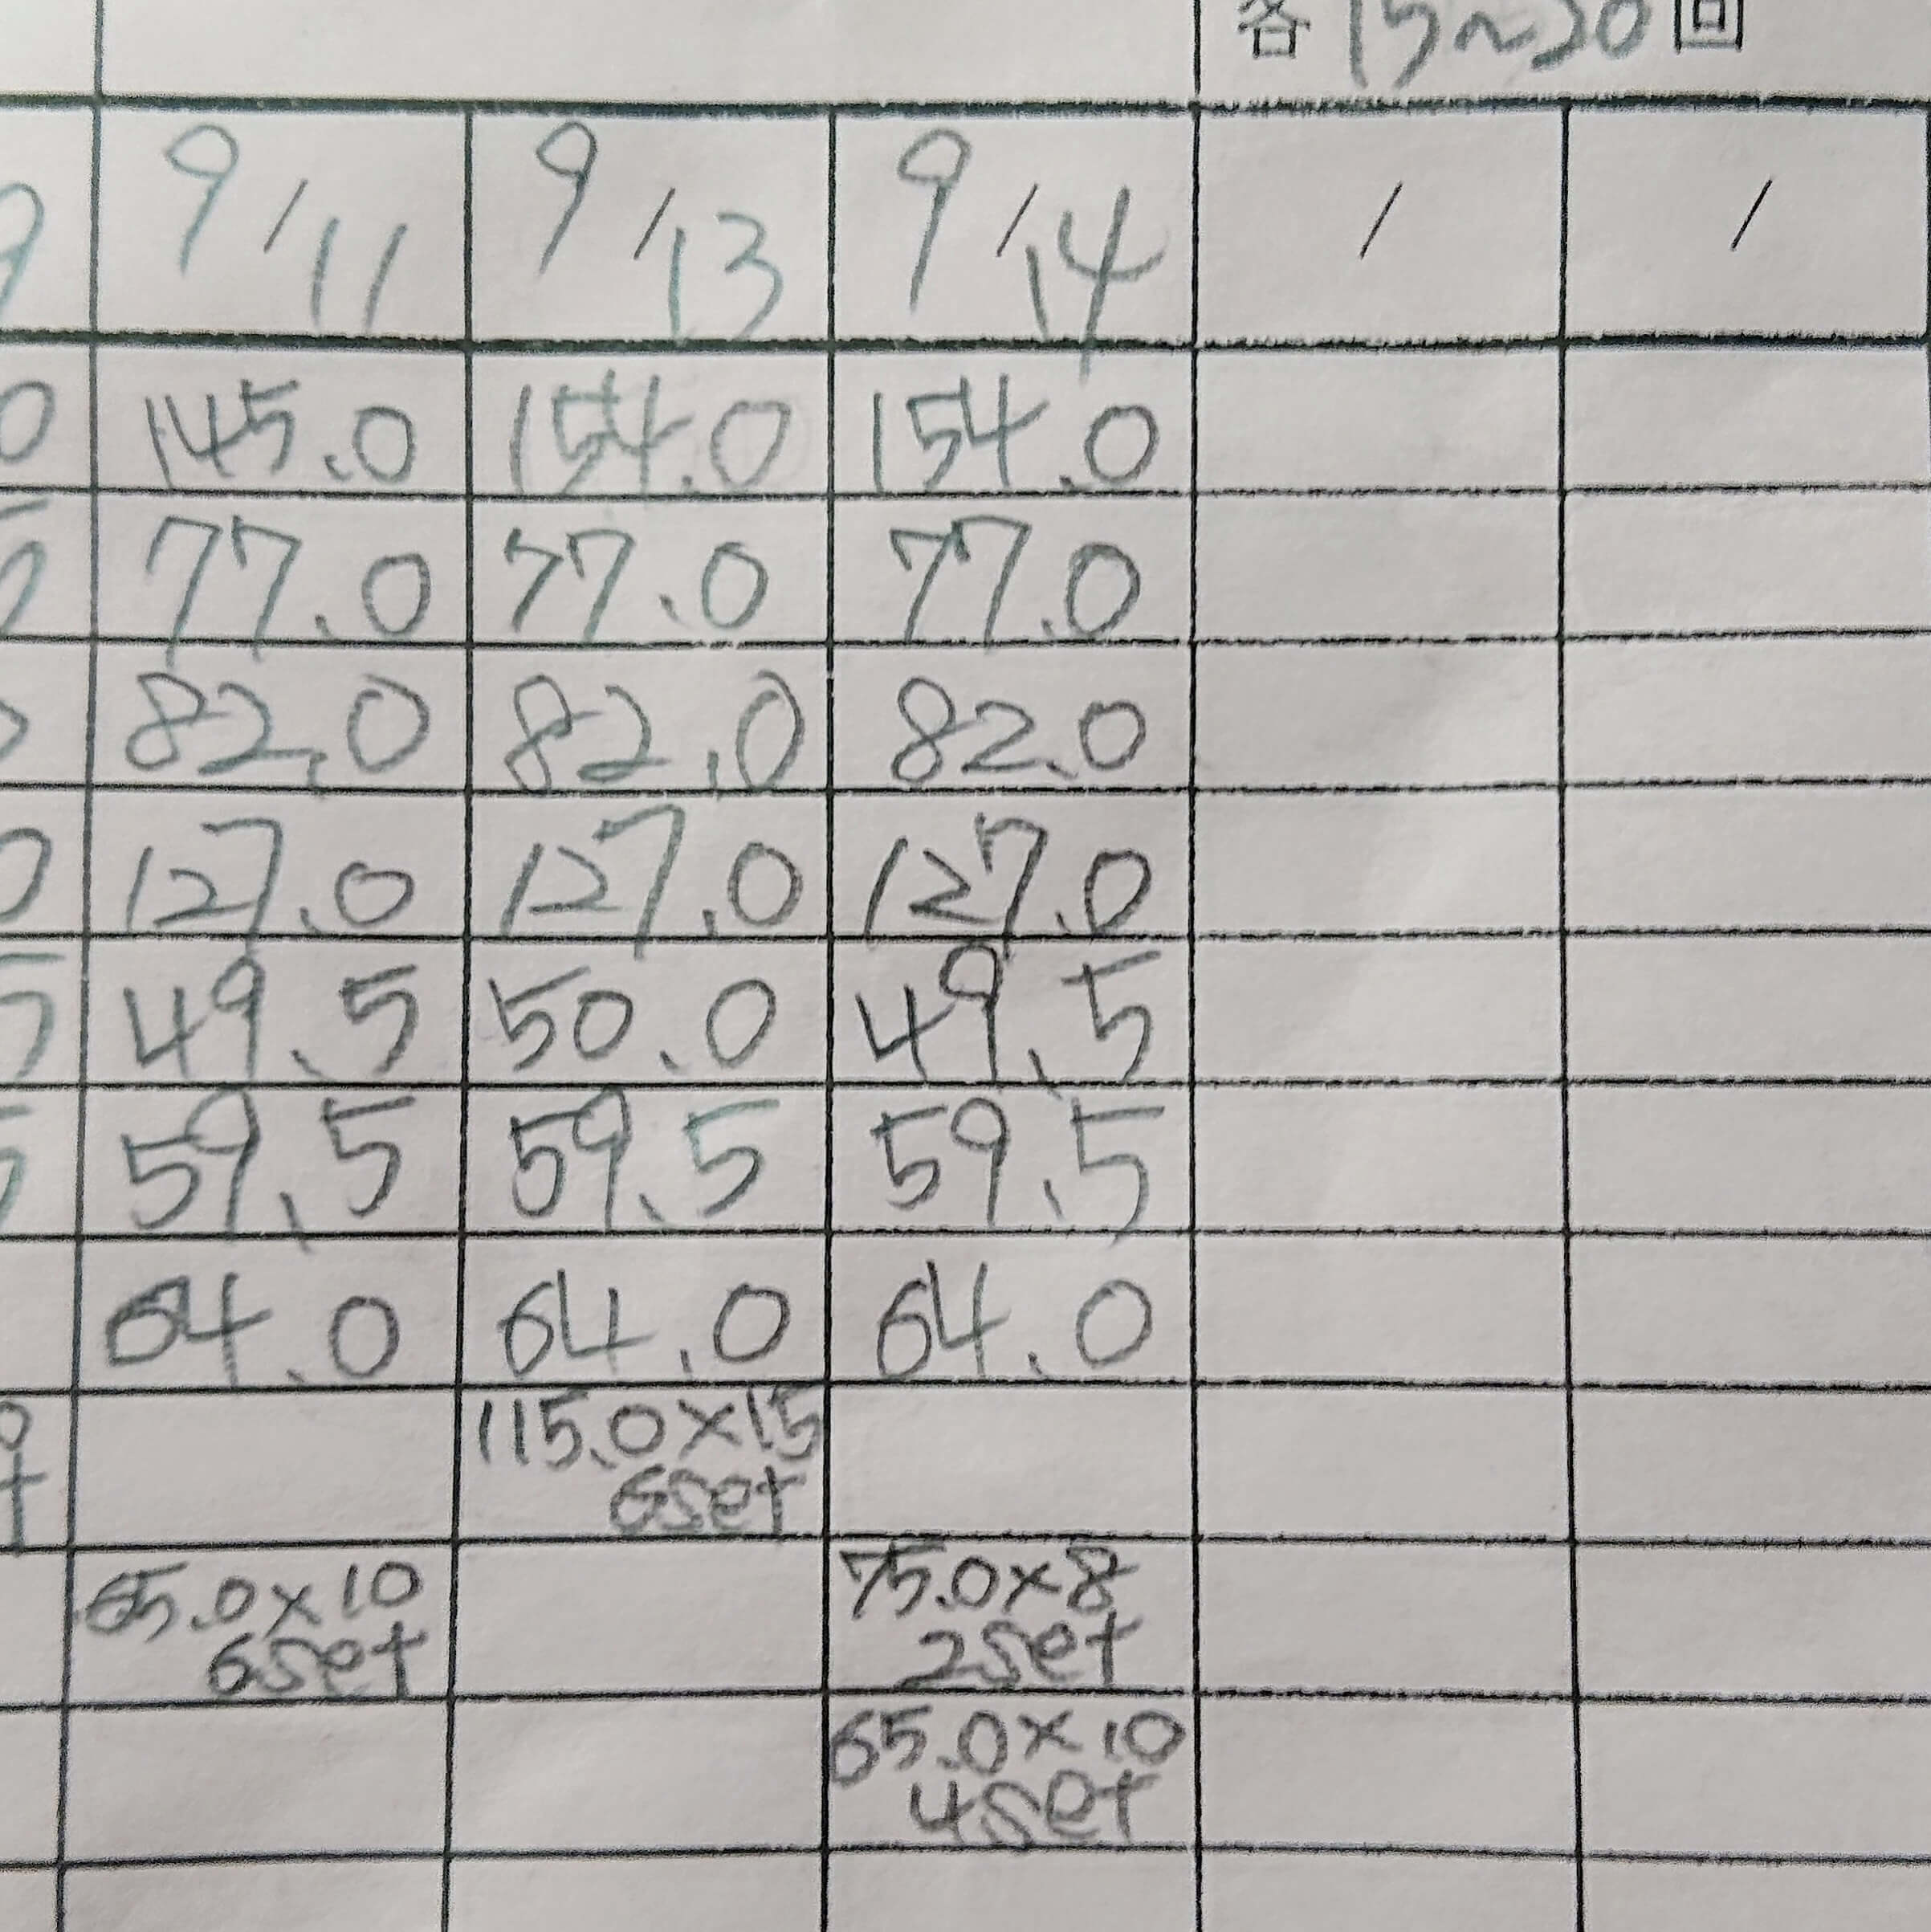 各15~20回
9/11 9/13 9/14 / /
145.0 154.0 154.0
77.0 77.0 77.0
82.0 82.0 82.0
127.0 127.0 127.0
49.5 50.0 49.5
59.5 59.5 59.5
64.0 64.0 64.0
115.0×15
6set
65.0×10 75.0×8
6set 2set
65.0×10
4set